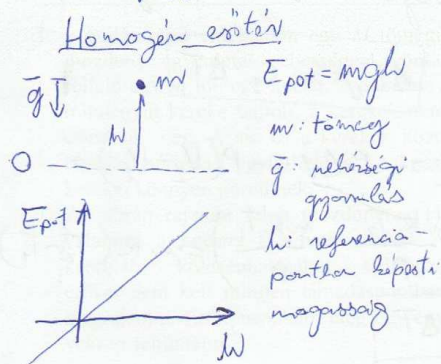 Homogén erőtér
ḡ
m
h
O
E_pot = mgh
m: tömeg
ḡ: nehézségi
gyorsulás
h: referencia-
ponthoz képesti
magasság
E_pot
h